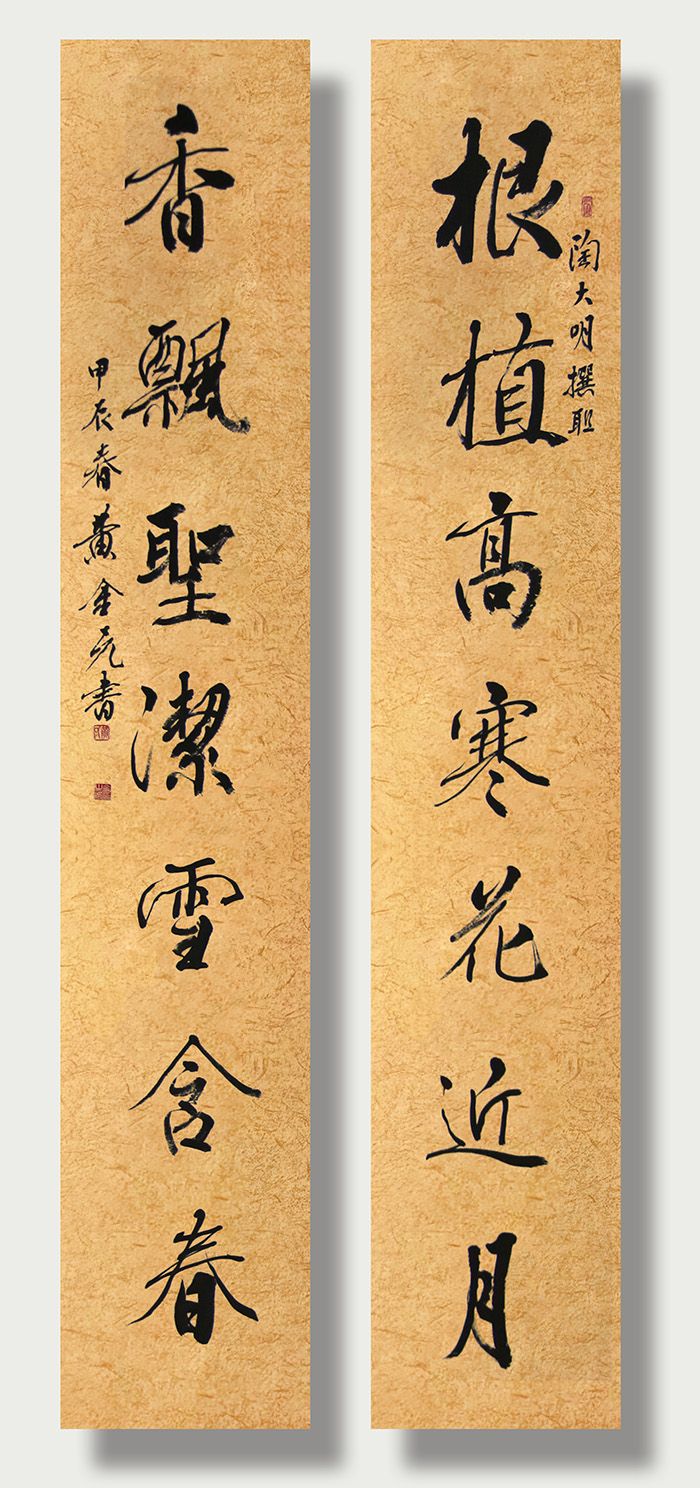 陶大明撰联
根植高寒花近月
香飄聖潔雪含春
甲辰春黄金亮書